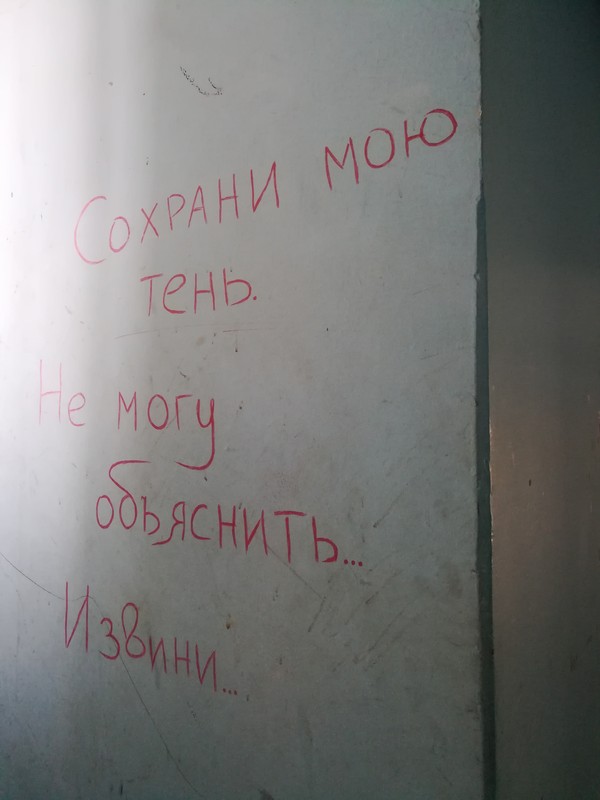 Сохрани мою
тень.
Не могу
объяснить...
Извини...